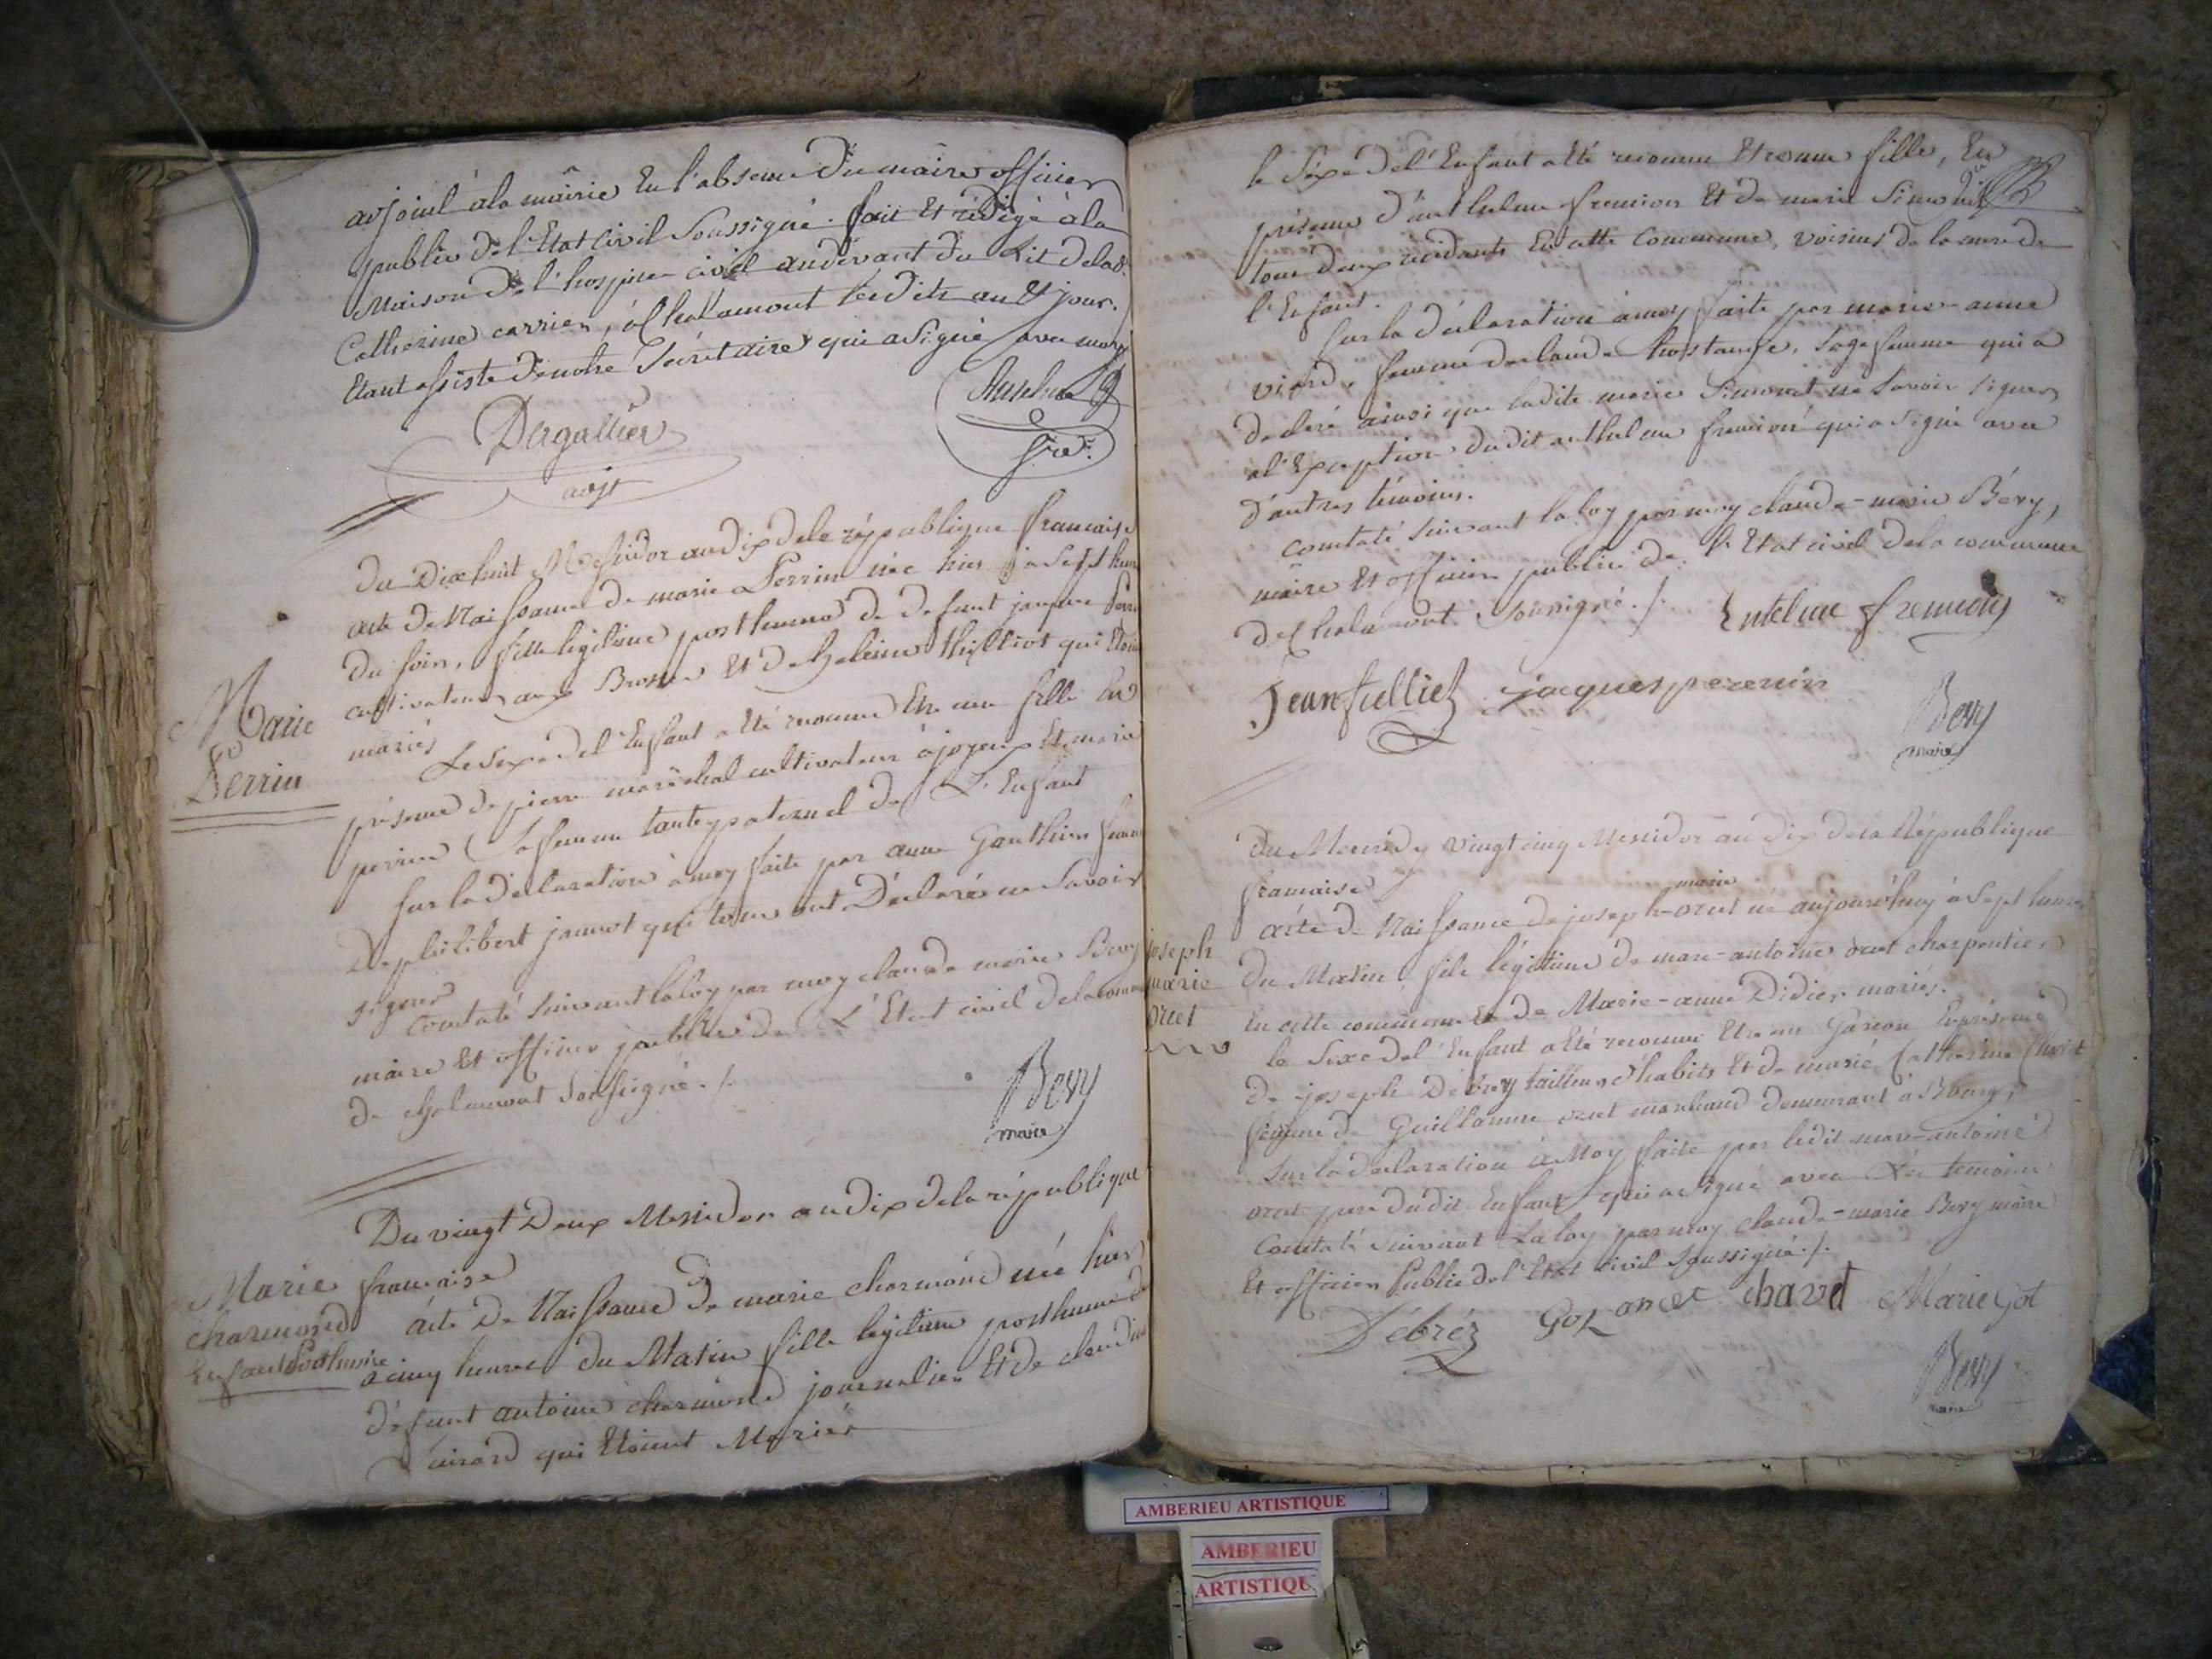 adjoint à la mairie En l'absence du maire officier
public de l'Etat civil Soussigné. fait Et rédigé à la
Maison de l'hospice civil audevant du Lit de lad.
Catherine carrier, à Chalamont lesdits an Et jour.
Etant assisté de notre Secrétaire qui a Signé avec moy
Dagallier
adjt
Anselme
Sre.
Marie
Perrin
Du Dixhuit Messidor an dix de la république francaise
acte de Naissance de marie Perrin née hier à Sept heures
du soir, fille légitime posthume de defunt jacque Perrin
cultivateur aux Brosses Et de helaine qui Etoient
mariés
Le Sexe de l'Enfant a été reconnu Etre une fille En
présence de pierre maréchal cultivateur à joyeux Et marie
perrin Sa femme tante paternel de L'Enfant
Sur la declaration à moy faite par anne Gauthier femme
de philibert jannot qui tous ont Déclaré ne Savoir
Signer
Constaté Suivant la loy par moy claude marie Bevy
maire Et officier public de L'Etat civil de la commune
de chalamont Soussigné./.
Bevy
maire
Marie
charmond
Enfant Posthume
Du vingt Deux Messidor an dix de la république
francaise
acte De Naissance De marie charmond née hier
a cinq heures du Matin fille légitime posthume de
défunt antoine charmond journalier Et de claudine
Guirard qui Etoient Mariés
le Sexe de l'Enfant a été reconnu Etre une fille, En
présence d'anthelme fremion Et de marie Simonet
tous deux résidants En cette Commune, voisins de la mere de
l'Enfant.
Sur la déclaration à moy faite par marie-anne
viard, femme de claude hostange, Sage femme qui a
declaré ainsi que ladite marie Simonet ne Savoir Signer
a l'Exception dudit anthelme fremion qui a Signé avec
d'autres témoins.
Constaté Suivant la loy par moy claude-marie Bévy,
maire Et officier public de l'Etat civil de la commune
de Chalamont Soussigné./.
Entelme fremion
Jean fulliet jacques pererin
Bevy
maire
joseph
marie
oruet
Du Mercredy vingt cinq Messidor an dix de la République
francaise
marie
acte de Naissance de joseph-oruet né aujourd'huy à Sept heures
du Matin, fils légitime de marc-antoine oruet charpentier
En cette commune Et de Marie-anne Didier mariés.
le Sexe de l'Enfant a été reconnu Etre un Garcon En présence
de joseph Débrey tailleur d'habits Et de marie Catherine
femme de Guillaume oruet marchand demeurant à Bourg,
Sur la déclaration à Moy faite par ledit marc-antoine
oruet pere dudit Enfant qui a signé avec Les temoins
Constaté Suivant La loy par moy claude-marie Bevy maire
Et officier Public de l'Etat civil Soussigné./.
Débréz chavet Marie
Bevy
maire
AMBERIEU ARTISTIQUE
AMBERIEU
ARTISTIQU